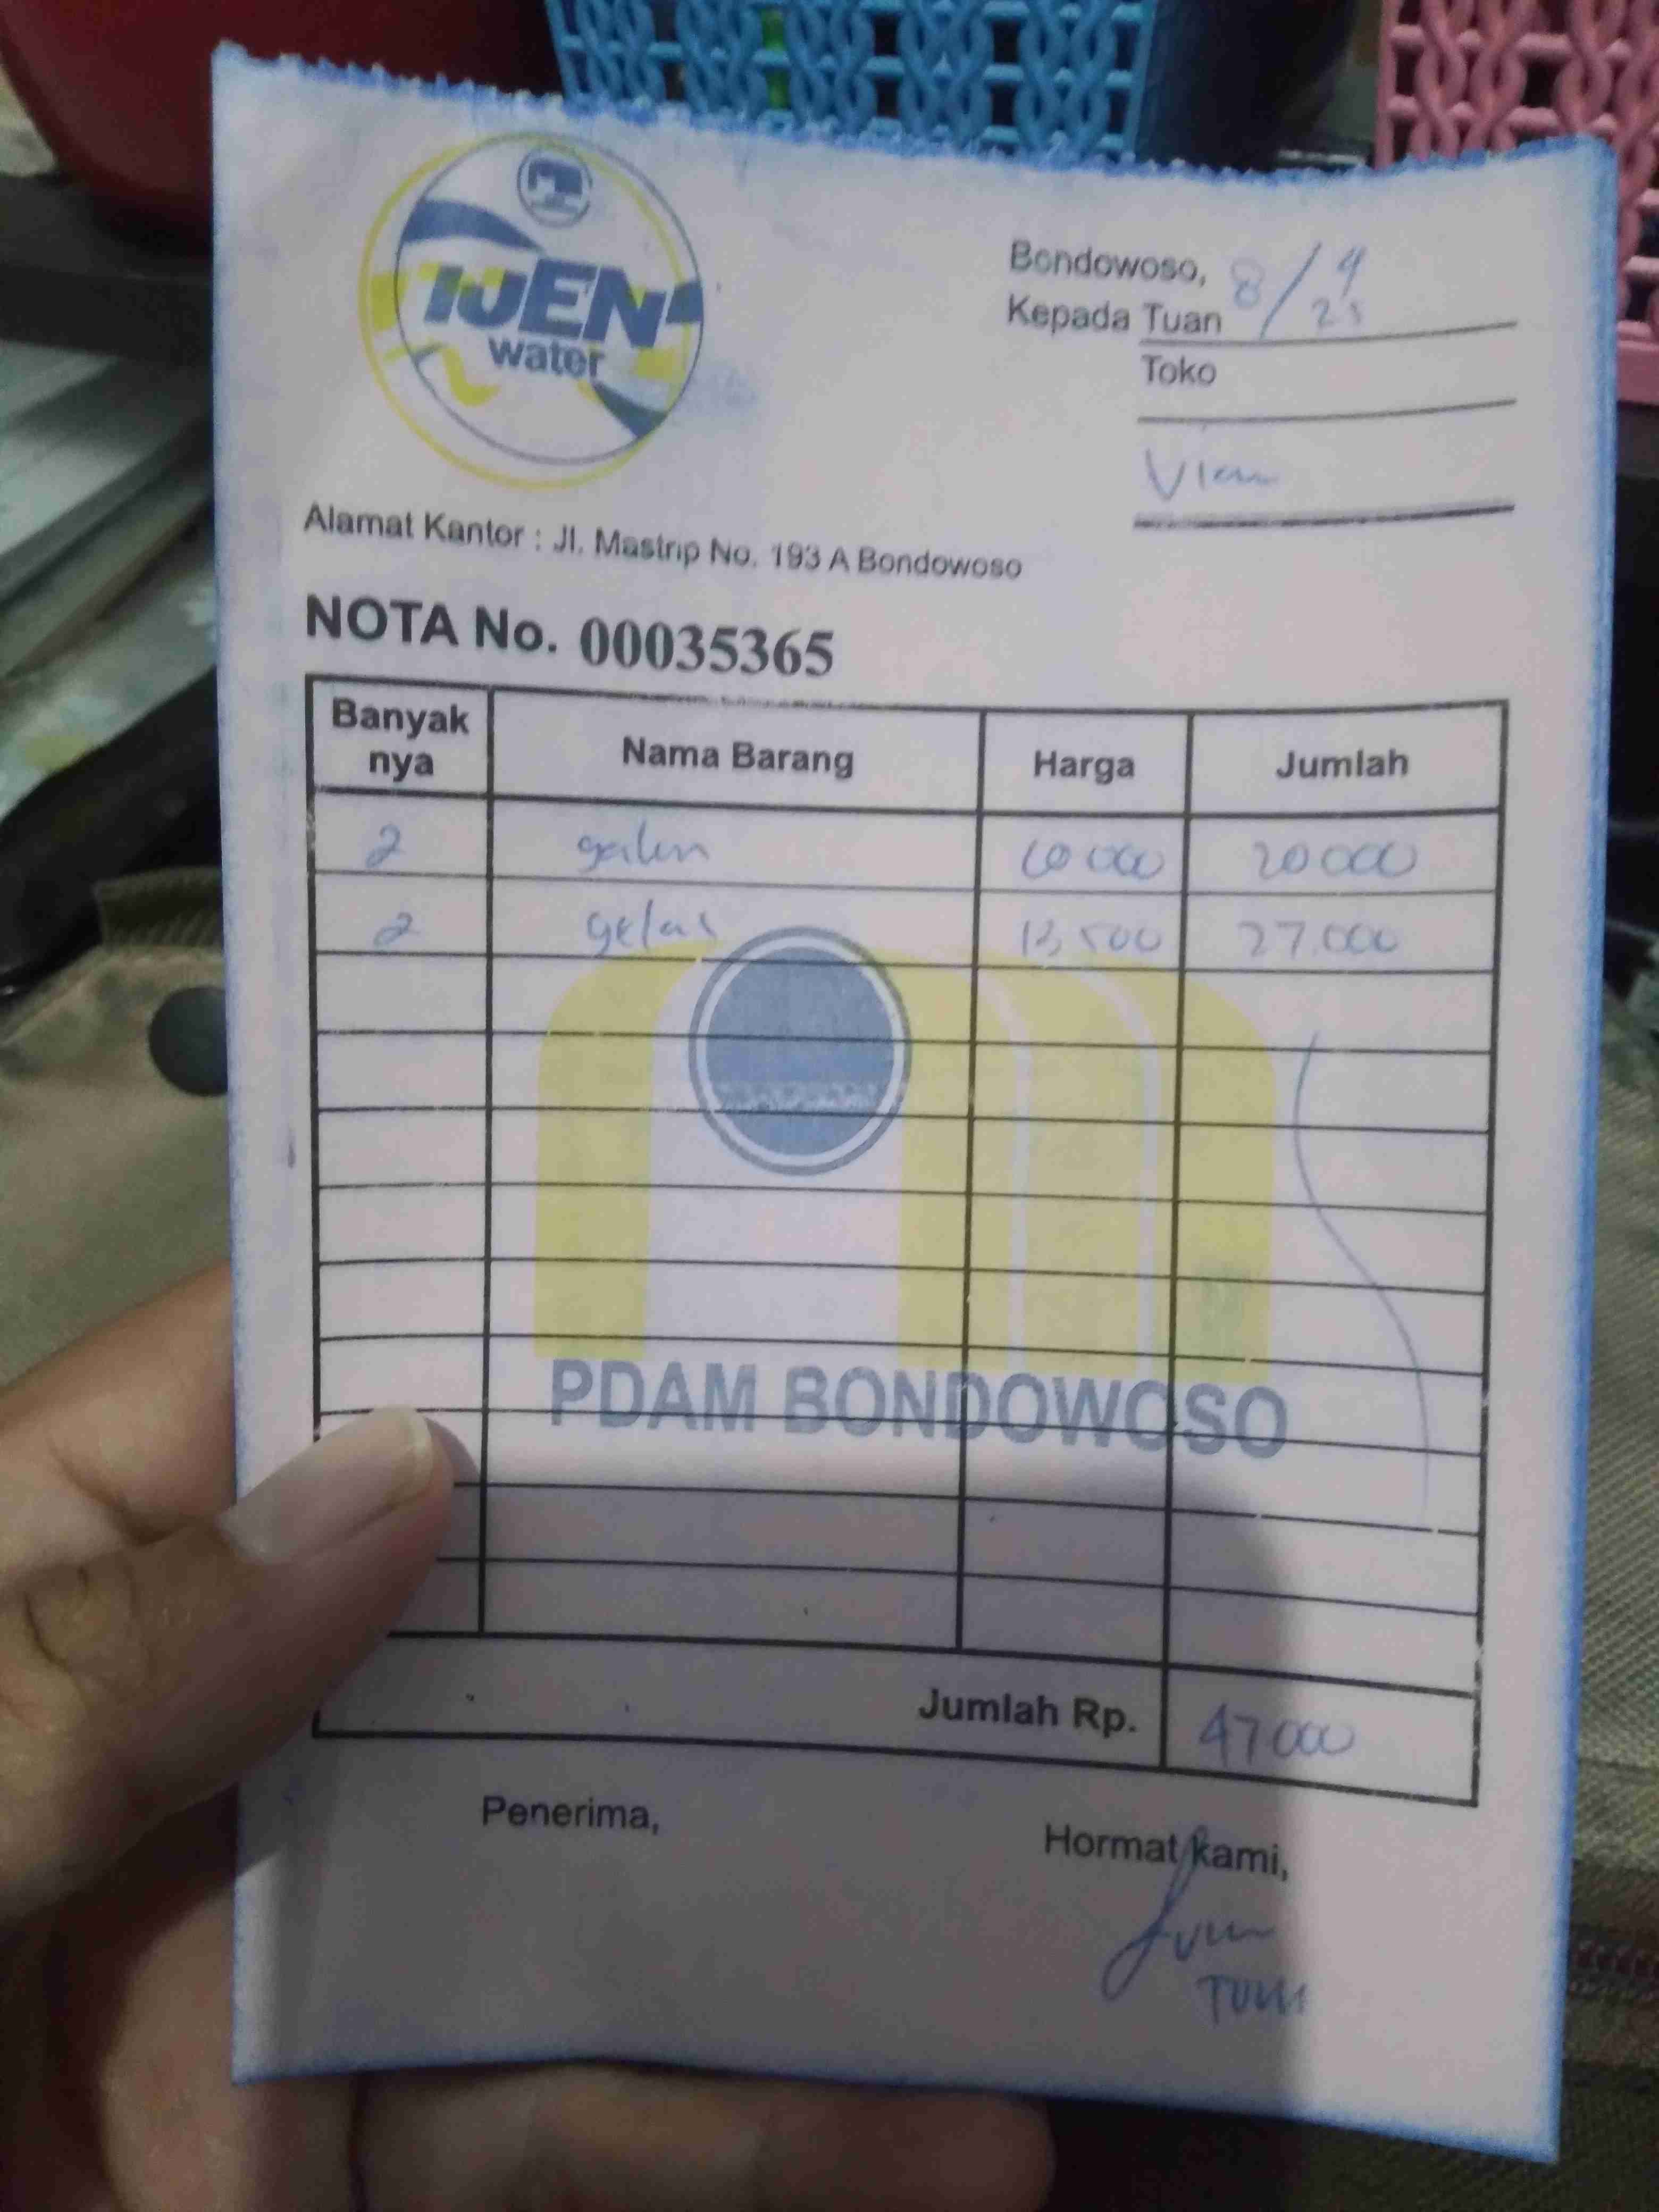 IJEN
water
Bondowoso, 8/4 25
Kepada Tuan
Toko
Alamat Kantor : Jl. Mastrip No. 193 A Bondowoso
NOTA No. 00035365
Banyak nya Nama Barang Harga Jumlah
2 galon 10 000 20 000
2 gelas 13,500 27.000
PDAM BONDOWOSO
Jumlah Rp. 47 000
Penerima,
Hormat kami,